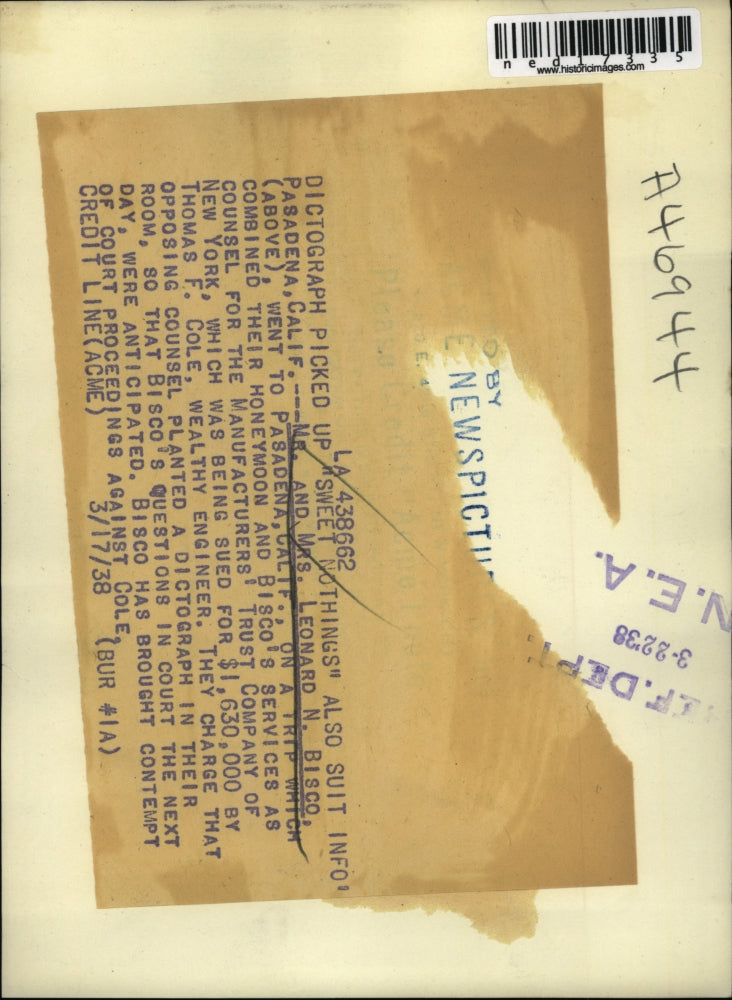 ned17335
www.historicimages.com
A46944
BY
NEWSPICTU
N.E.A.
3-22'38
EF. DEPT.
LA 438662
DICTOGRAPH PICKED UP "SWEET NOTHINGS" ALSO SUIT INFO'
PASADENA, CALIF.---MR. AND MRS. LEONARD N. BISCO,
(ABOVE), WENT TO PASADENA, CALIF., ON A TRIP WHICH
COMBINED THEIR HONEYMOON AND BISCO'S SERVICES AS
COUNSEL FOR THE MANUFACTURERS' TRUST COMPANY OF
NEW YORK, WHICH WAS BEING SUED FOR $1,630,000 BY
THOMAS F. COLE, WEALTHY ENGINEER. THEY CHARGE THAT
OPPOSING COUNSEL PLANTED A DICTOGRAPH IN THEIR
ROOM, SO THAT BISCO'S QUESTIONS IN COURT THE NEXT
DAY, WERE ANTICIPATED. BISCO HAS BROUGHT CONTEMPT
OF COURT PROCEEDINGS AGAINST COLE,
CREDIT LINE(ACME) 3/17/38 (BUR #1A)